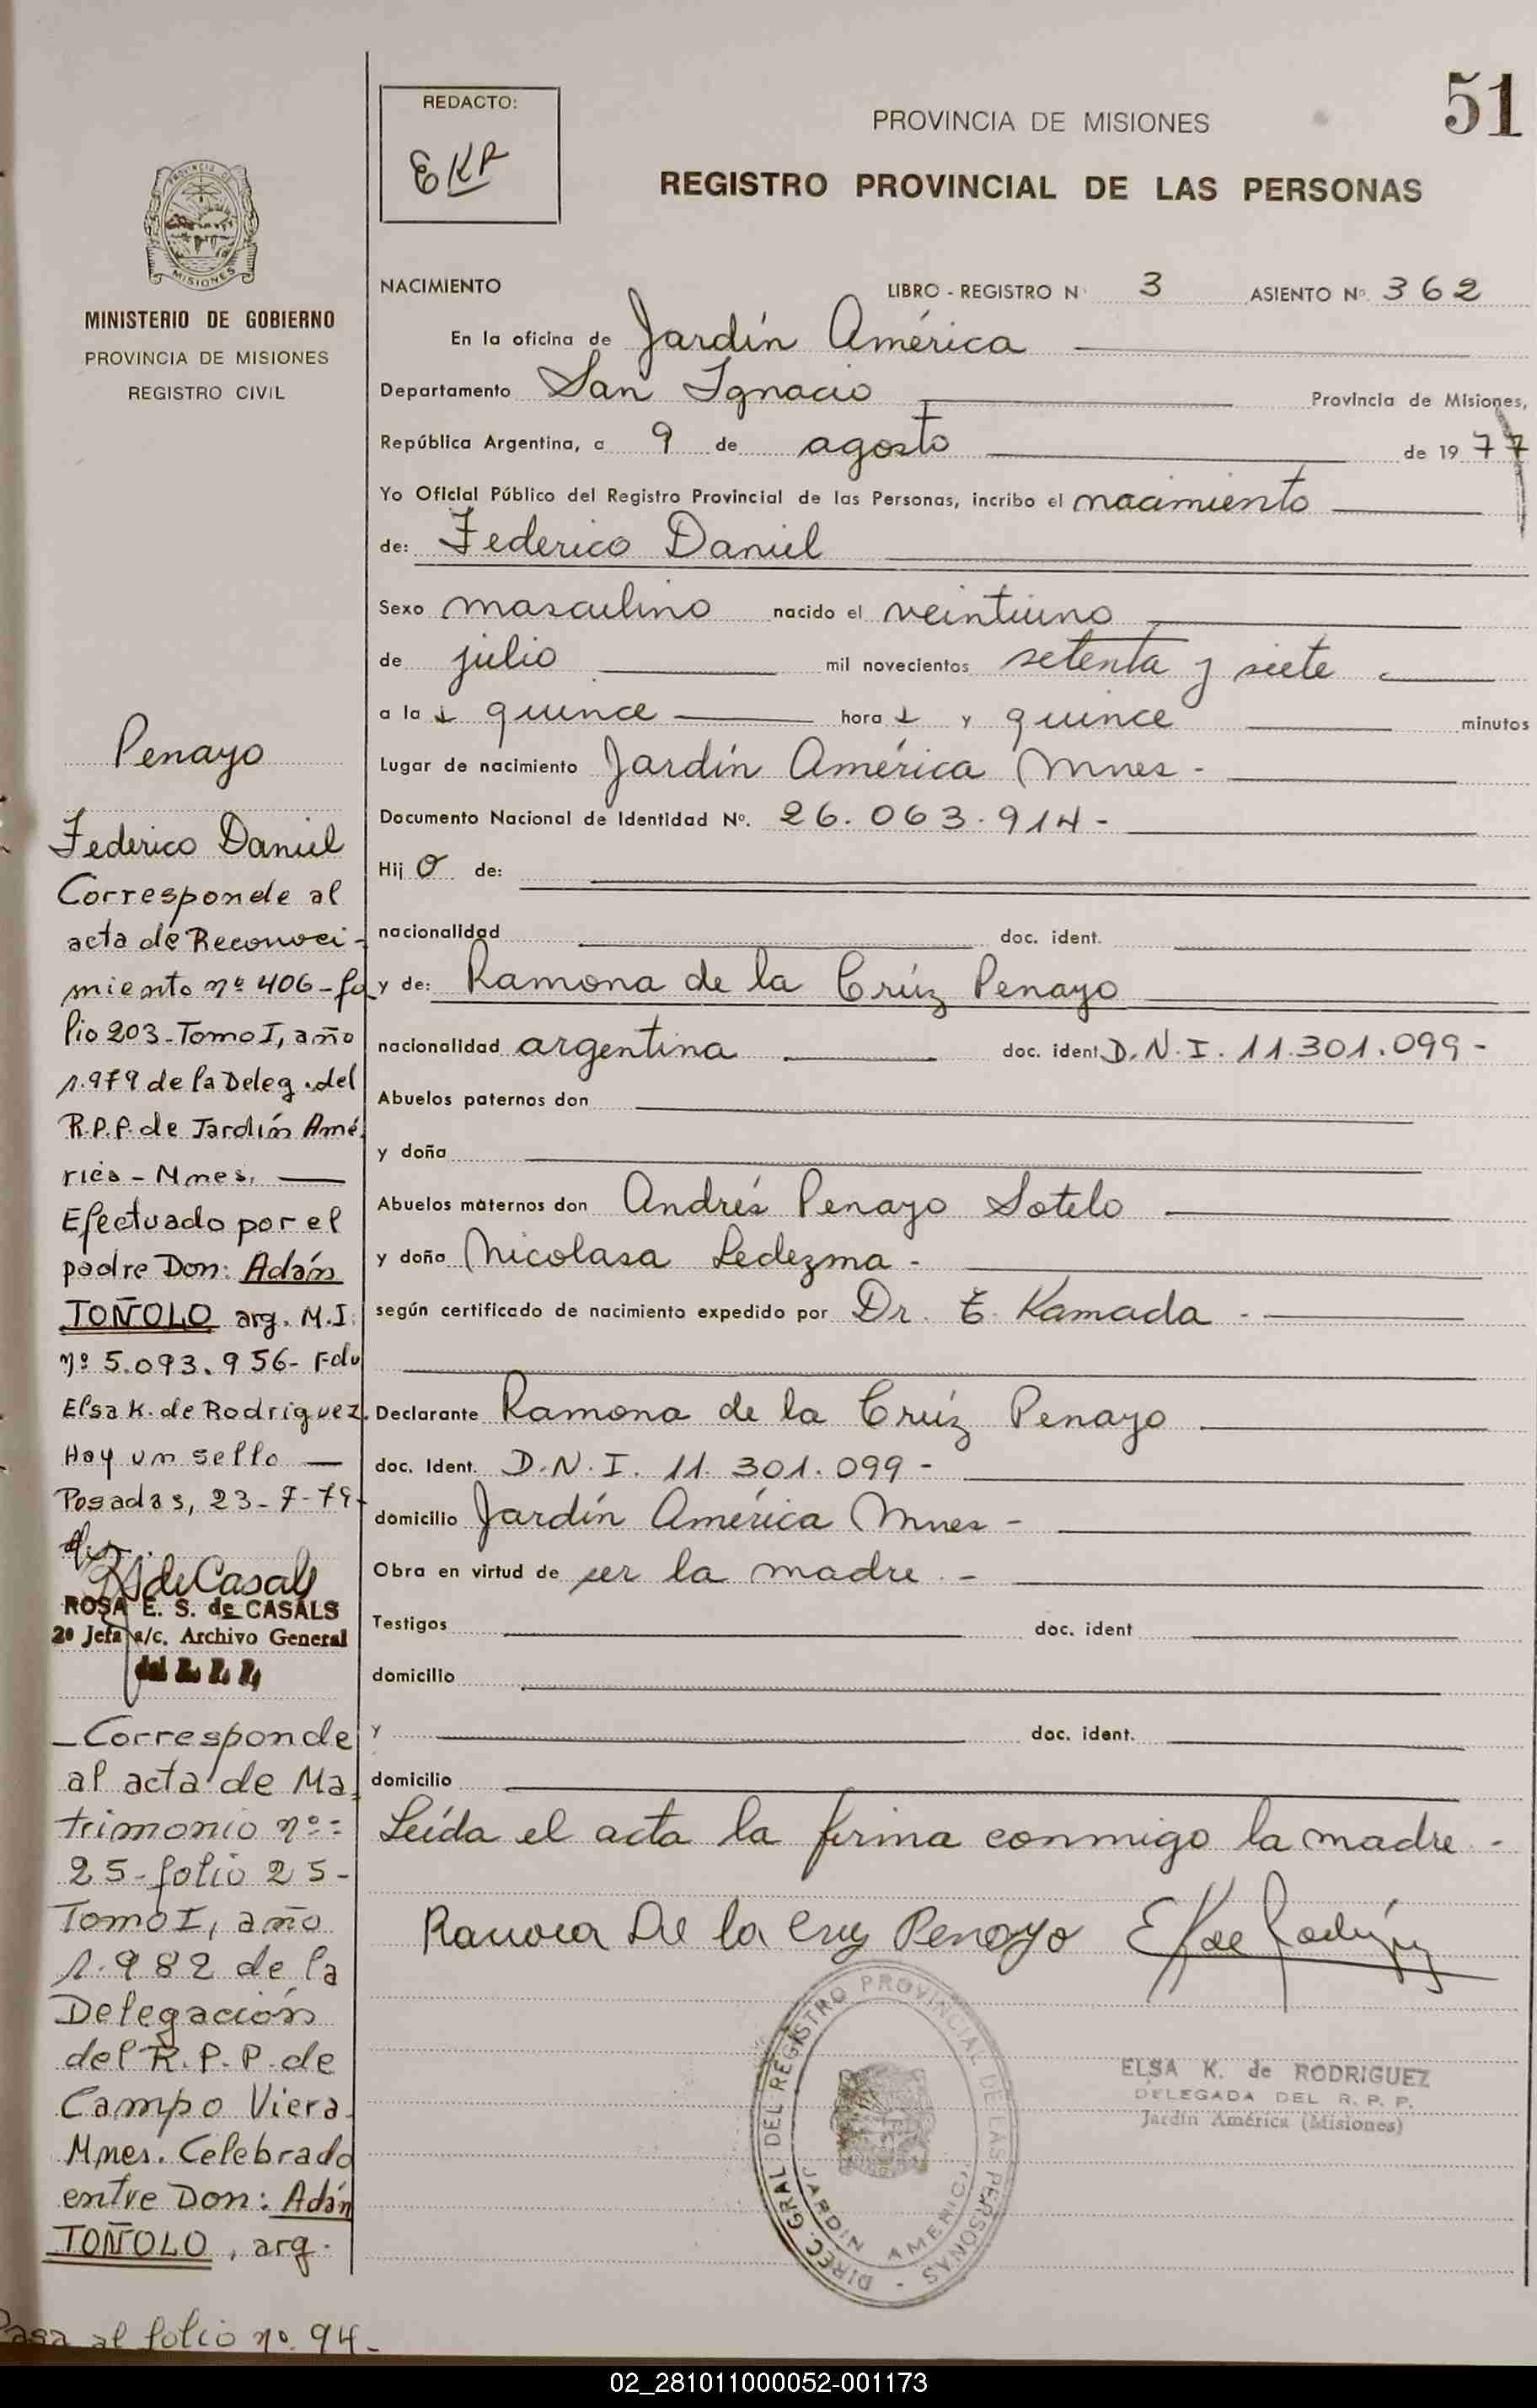 51
REDACTO:
EKR
PROVINCIA DE MISIONES
REGISTRO PROVINCIAL DE LAS PERSONAS
PROVINCIA DE
MISIONES
MINISTERIO DE GOBIERNO
PROVINCIA DE MISIONES
REGISTRO CIVIL
NACIMIENTO LIBRO - REGISTRO Nº 3 ASIENTO Nº 362
En la oficina de Jardín América
Departamento San Ignacio Provincia de Misiones,
República Argentina, a 9 de agosto de 1977
Yo Oficial Público del Registro Provincial de las Personas, incribo el nacimiento
de: Federico Daniel
Sexo masculino nacido el veintiuno
de julio mil novecientos setenta y siete
a la s quince hora s y quince minutos
Lugar de nacimiento Jardín América Mnes -
Documento Nacional de Identidad Nº. 26.063.914 -
Hij o de:
nacionalidad doc. ident.
y de: Ramona de la Crúz Penayo
nacionalidad argentina doc. ident D.N.I. 11.301.099 -
Abuelos paternos don
y doña
Abuelos maternos don Andrés Penayo Sotelo
y doña Nicolasa Ledezma -
según certificado de nacimiento expedido por Dr. E. Kamada -
Declarante Ramona de la Crúz Penayo
doc. Ident. D.N.I. 11.301.099 -
domicilio Jardín América Mnes -
Obra en virtud de ser la madre. -
Testigos doc. ident
domicilio
y doc. ident.
domicilio
Leída el acta la firma conmigo la madre -
Ramona De la Cruz Penayo EK de Rodríguez
DIREC. GRAL. DEL REGISTRO PROVINCIAL DE LAS PERSONAS -
JARDIN AMERICA
ELSA K. de RODRIGUEZ
DELEGADA DEL R. P. P.
Jardín América (Misiones)
Penayo
Federico Daniel
Corresponde al
acta de Reconoci-
miento nº 406 - fo
lio 203 - Tomo I, año
1.979 de la Deleg. del
R.P.P. de Jardín Amé
rica - Mnes.
Efectuado por el
padre Don: Adán
TOÑOLO arg. M.I.
nº 5.093.956 - Fdo
Elsa K. de Rodriguez.
Hay un sello
Posadas, 23-7-79-
de Casals
ROSA E. S. de CASALS
2º Jefa a/c. Archivo General
del R. P. P.
_ Corresponde
al acta de Ma
trimonio nº:
25 - folio 25 -
Tomo I, año
1.982 de la
Delegación
del R.P.P. de
Campo Viera
Mnes. Celebrado
entre Don: Adán
TOÑOLO, arg.
Pasa al folio nº. 94 -
02_281011000052-001173